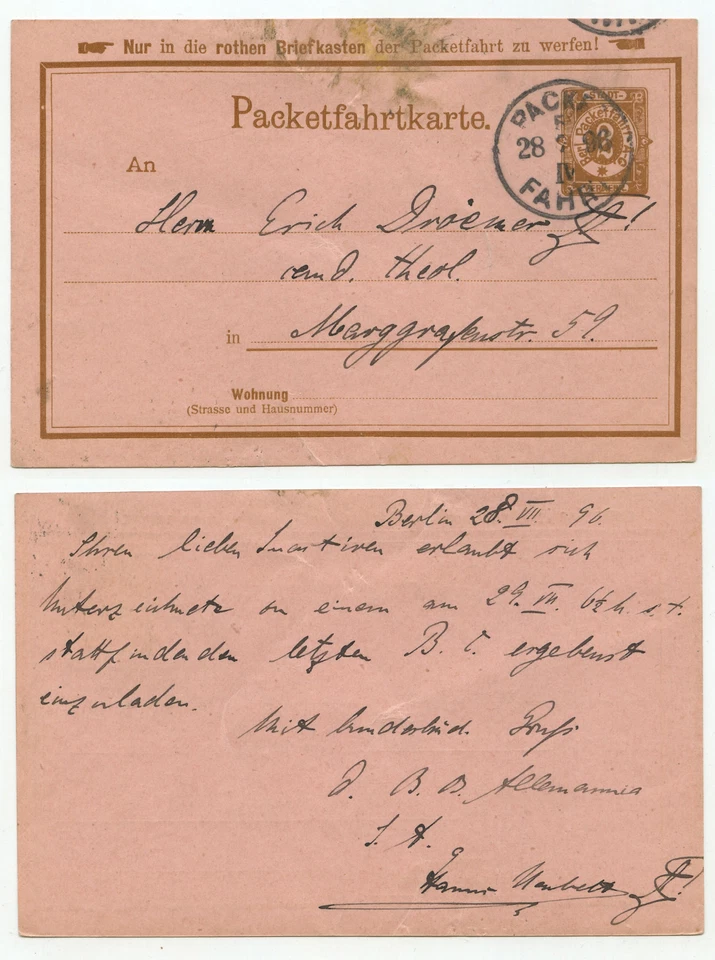 Nur in die rothen Briefkasten der Packetfahrt zu werfen!
Packetfahrtkarte.
PACKET
28 7 96
IV
FAHRT
An
Herrn Erich Droemer !
cand. theol.
in Marggrafenstr. 59.
Wohnung
(Strasse und Hausnummer)
Berlin 28. VII. 96.
Ihren lieben Inactiven erlaubt sich
Unterzeichnete zu einem am 29. VII. 6½ h. s. t.
stattfindenden letzten B. C. ergebenst
einzuladen.
Mit bundesbrüd. Gruß
d. B. B. Allemannia
I. A.
Hanns !